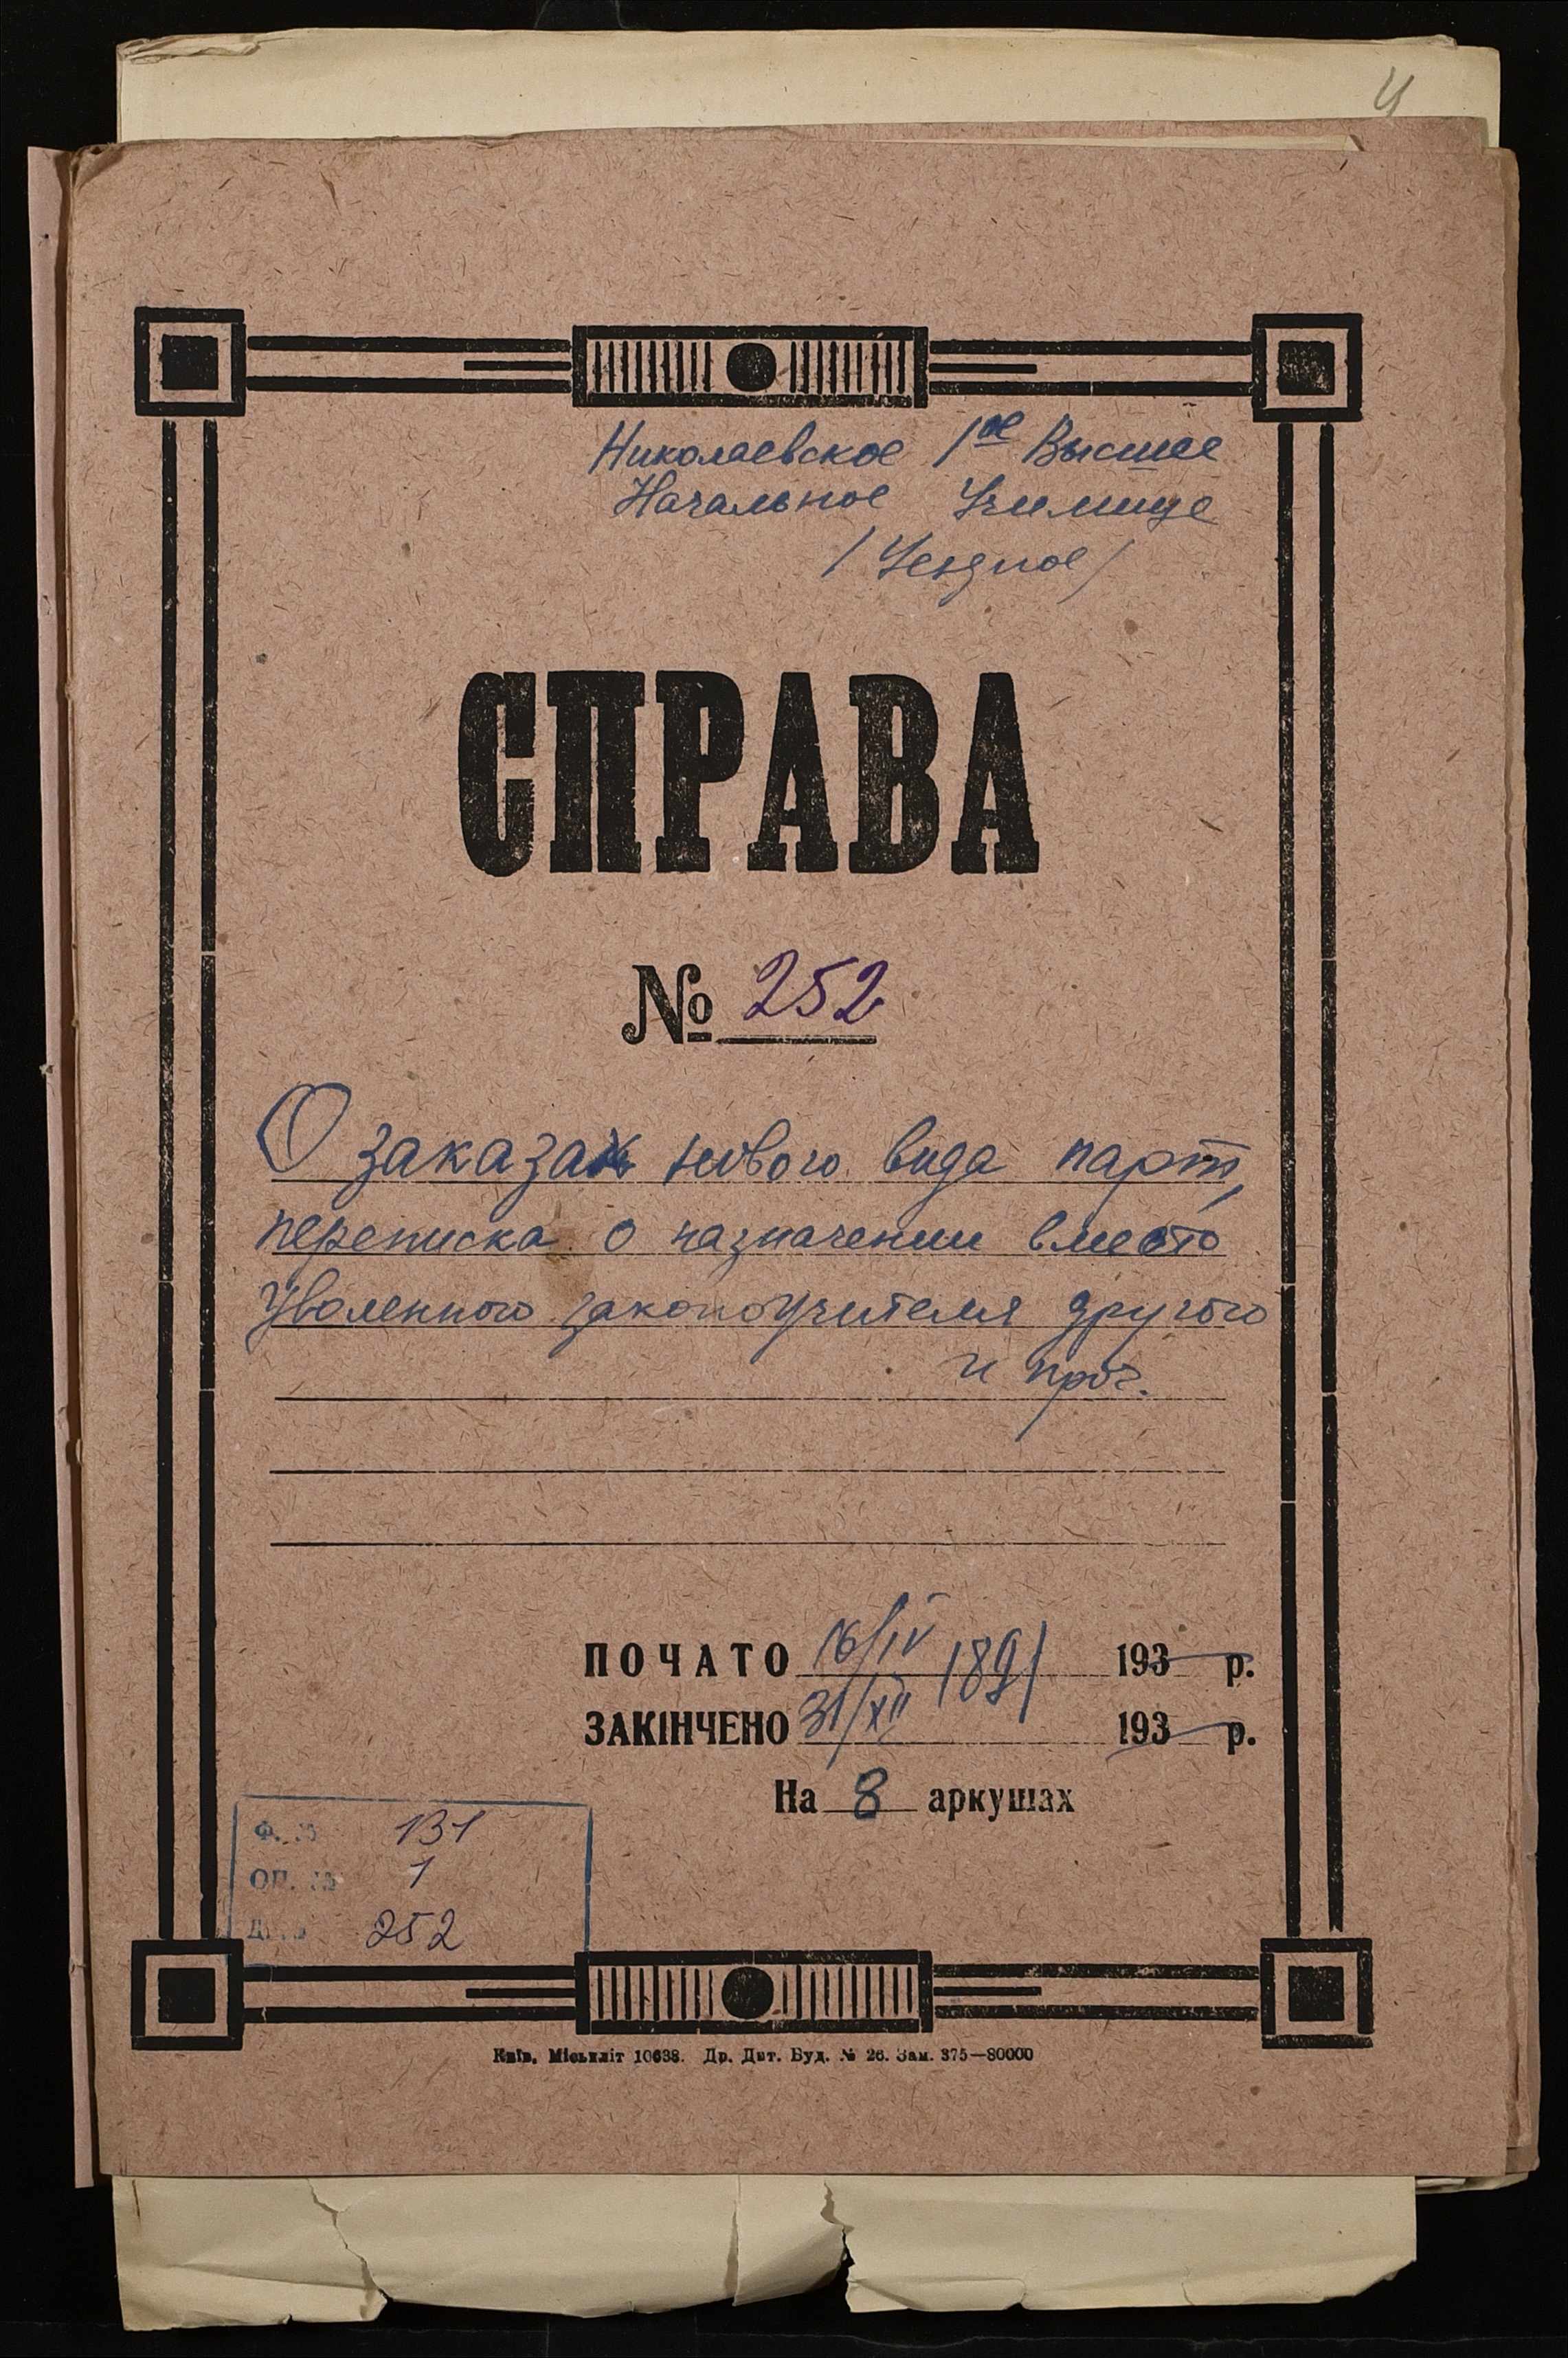 Николаевское 1ое Высшее
Начальное Училище
/Уездное/
СПРАВА
№ 252
О заказах нового вида парт,
переписка о назначении вместо
Уволенного законоучителя другого
и проч.
ПОЧАТО 16/IV 1891 193 р.
ЗАКІНЧЕНО 31/XII 193 р.
На 8 аркушах
Ф. № 131
ОП. № 1
Д. № 252
Київ, Міськліт 10638. Др. Дит. Буд. № 26. Зам. 375—80000